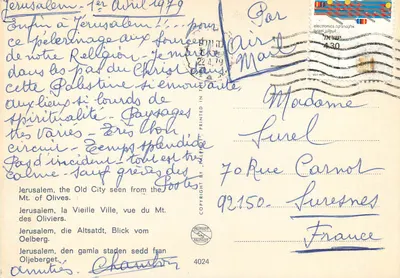 Jerusalem - 1er Avril 1979
Enfin à Jérusalem !!! ... pour
ce pèlerinage aux sources
de notre Religion - Je marche
dans les pas du Christ dans
cette Palestine si émouvante
aux lieux si lourds de
Spiritualité - Paysages
très variés - Très bon
circuit - Temps splendide
Pas d'incident - tout est très
calme - sauf grèves des
Postes
Jerusalem, the Old City seen from the
Mt. of Olives.
Jerusalem, la Vieille Ville, vue du Mt.
des Oliviers.
Jerusalem, die Altsadt, Blick vom
Oelberg.
Jerusalem, den gamla staden sedd fran
Oljeberget.
amitiés. Chambon
COPYRIGHT BY
PRINTED IN
4024
Par
Air
Mail
4.30
Madame
Surel
70 Rue Carnot
92150 - Suresnes
France